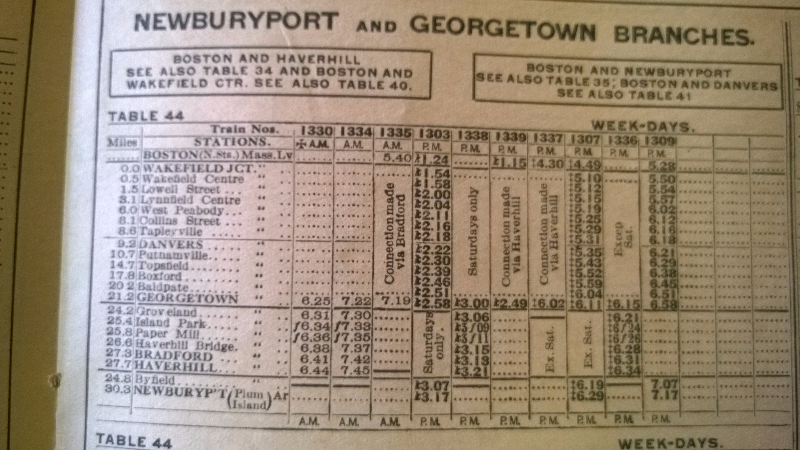 NEWBURYPORT AND GEORGETOWN BRANCHES.
BOSTON AND HAVERHILL
SEE ALSO TABLE 34 AND BOSTON AND
WAKEFIELD CTR. SEE ALSO TABLE 40.
BOSTON AND NEWBURYPORT
SEE ALSO TABLE 35; BOSTON AND DANVERS
SEE ALSO TABLE 41
TABLE 44
WEEK-DAYS.
Train Nos. 1330 1334 1335 1303 1338 1339 1337 1307 1336 1309
Miles STATIONS. A.M. A.M. A.M. P.M. P.M. P.M. P.M. P.M. P.M. P.M.
BOSTON (N.Sta.) Mass. Lv 5.40 1.24 1.15 4.30 4.49 5.28
0.0 WAKEFIELD JCT. "
0.5 Wakefield Centre " 1.54 5.10 5.50
1.5 Lowell Street " 1.58 5.12 5.54
3.1 Lynnfield Centre " 2.00 5.15 5.57
6.0 West Peabody " 2.04 6.02
8.1 Collins Street " 2.11 5.25 6.12
8.6 Tapleyville " 2.16 5.29 6.16
2.18 5.31 6.18
9.2 DANVERS " 2.22 5.35 6.21
10.7 Putnamville " 2.30 5.43 6.29
14.7 Topsfield " 2.39 5.52 6.38
17.8 Boxford " 2.46 5.59 6.45
20.2 Baldpate " 2.51 6.04 6.51
21.2 GEORGETOWN " 6.25 7.22 7.19 2.58 3.00 2.49 6.02 6.11 6.15 6.58
Connection made via Bradford
Saturdays only
Connection made via Haverhill
Connection made via Haverhill
Sat.
24.2 Groveland " 6.31 7.30 3.06 6.21
25.4 Island Park " f6.34 f7.33 6/24
25.8 Paper Mill " f6.36 f7.35 6/26
26.6 Haverhill Bridge. " 6.38 7.37 3.15 6.28
27.3 BRADFORD " 6.41 7.42 6.31
27.7 HAVERHILL " 6.44 7.45 3.21 6.34
Saturdays only.
Ex. Sat.
Ex. Sat.
24.8 Byfield " 3.07 6.19 7.07
30.3 NEWBURYP'T (Plum Island) Ar 3.17 6.29 7.17
A.M. A.M. A.M. P.M. P.M. P.M. P.M. P.M. P.M. P.M.
TABLE 44
WEEK-DAYS.